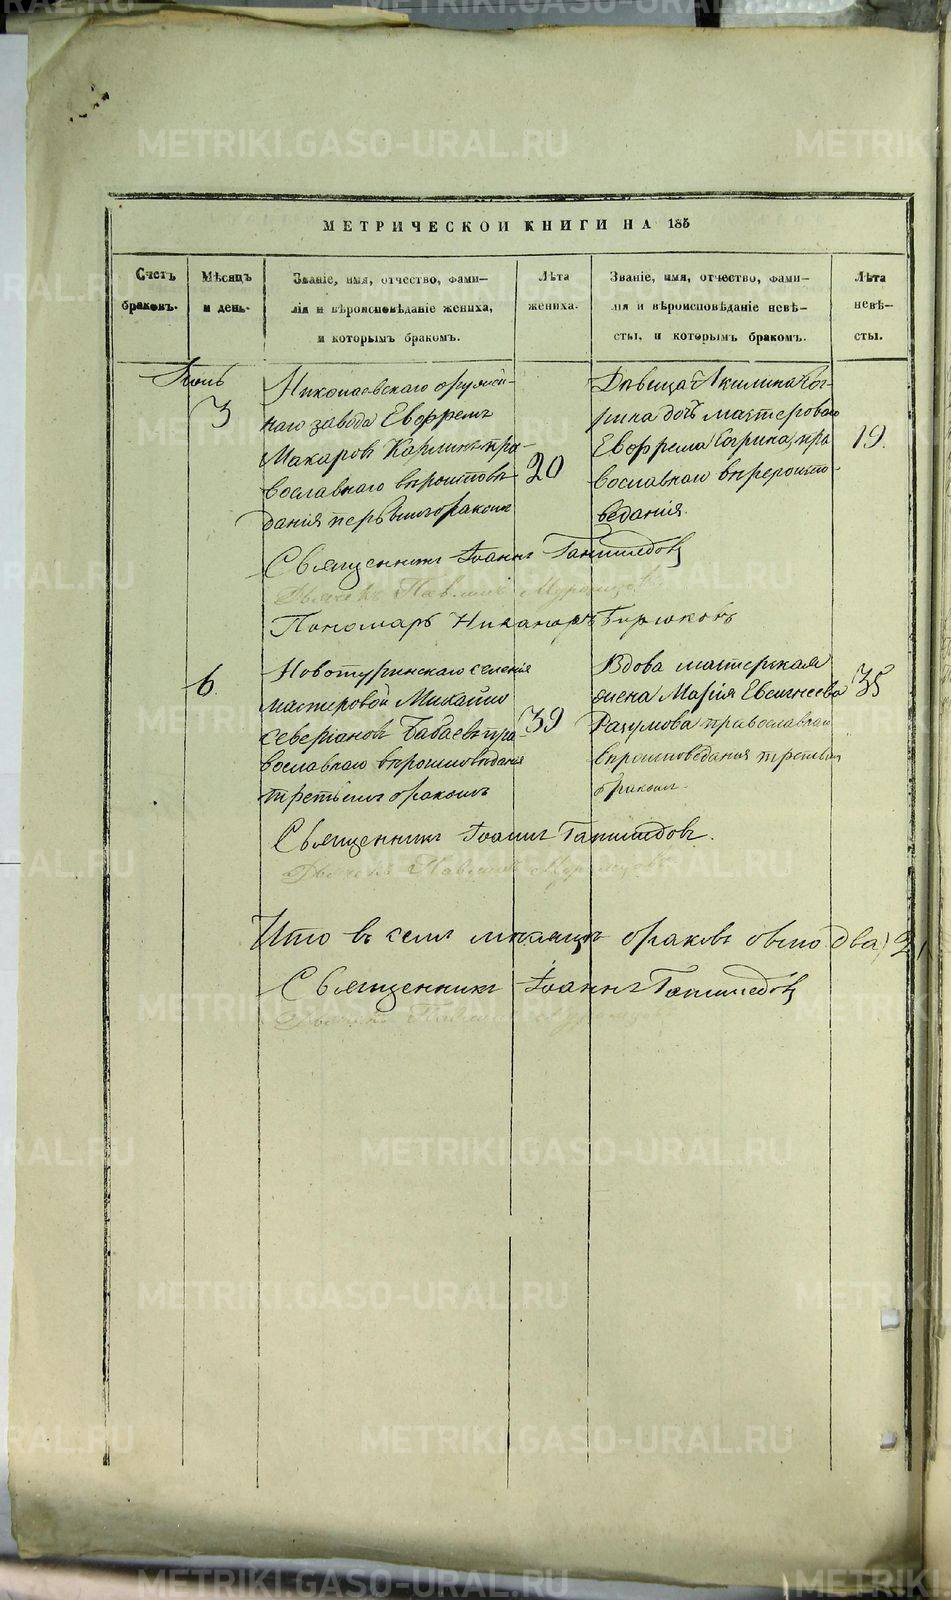 МЕТРИЧЕСКОЙ КНИГИ НА 185
Счетъ браковъ.
Мѣсяцъ и день.
Званіе, имя, отчество, фами-
лія и вѣроисповѣданіе жениха,
и которымъ бракомъ.
Лѣта жениха.
Званіе, имя, отчество, фами-
лія и вѣроисповѣданіе невѣ-
сты, и которымъ бракомъ.
Лѣта невѣ-
сты.
3
Николаевскаго оружей-
наго завода Евфремъ
Макаровъ Карлинъ пра-
вославнаго вѣроисповѣ
данія первымъ бракомъ
20
Дѣвица Акилина Сог-
рина дочь мастероваго
Евфрема Согрина, пра
вославнаго вѣроиспо-
веданія.
19.
Священникъ Іоаннъ
Дьячекъ Павлинъ
Пономарь Никаноръ Горшковъ
6.
Новотуринскаго селенія
мастеровой Михаилъ
Северіановъ Бабаевъ пра
вославнаго вѣроисповѣданія
третьимъ бракомъ
39
Вдова мастерская
жена Марія Евсигнеева
Разумова православнаго
вѣроисповеданія третьимъ
бракомъ.
35
Священникъ Іоаннъ
Дьячекъ Павлинъ
Что въ семъ месяце браковъ было (два) 2,
Священникъ Іоаннъ
Дьячекъ Павлинъ
METRIKI.GASO-URAL.RU